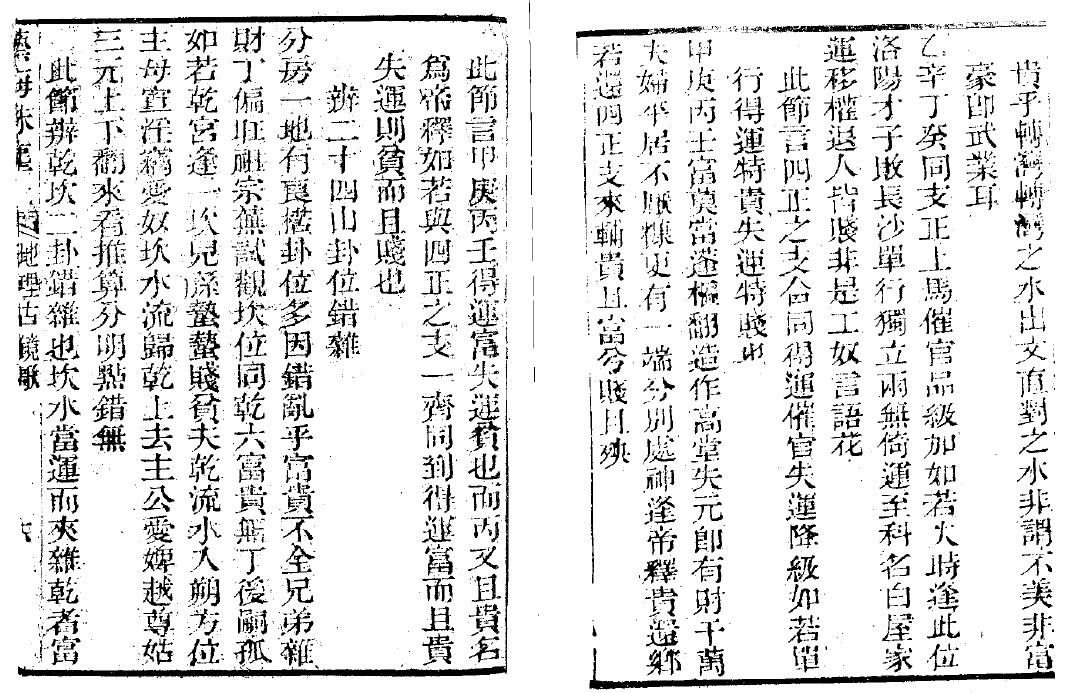 貴乎轉灣轉灣之水出支直對之水非謂不美非富
豪卽武業耳
乙辛丁癸同支正上馬催官品級加如若大時逢此位
洛陽才子敗長沙單行獨立兩無倚運至科名白屋家
運移權退人皆賤非是工奴言語花
此節言四正之支合同得運催官失運降級如若單
行得運特貴失運特賤也
甲庚丙壬富莫當蓬樞翻造作高堂失元卽有財千萬
夫婦平居不厭糠更有一端分別處神逢帝釋貴還鄉
若還四正支來輔貴且富兮賤且殃
此節言甲庚丙壬得運富失運貧也而丙又且貴名
爲帝釋如若與四正之支一齊同到得運富而且貴
失運則貧而且賤也
辨二十四山卦位錯雜
分房一地有喪 卦位多因錯亂乎富貴不全兄弟雜
財丁偏旺祖宗蕪試觀坎位同乾六富貴無丁後嗣孤
如若乾宮逢一坎兒孫蟄蟄賤貧夫乾流水入朔方位
主母宣淫竊愛奴坎水流歸乾上去主公愛婢越尊姑
三元上下翻來看推算分明點錯無
此節辨乾坎二卦錯雜也坎水當運而夾雜乾者富
藝海珠塵 地理古鏡歌 六